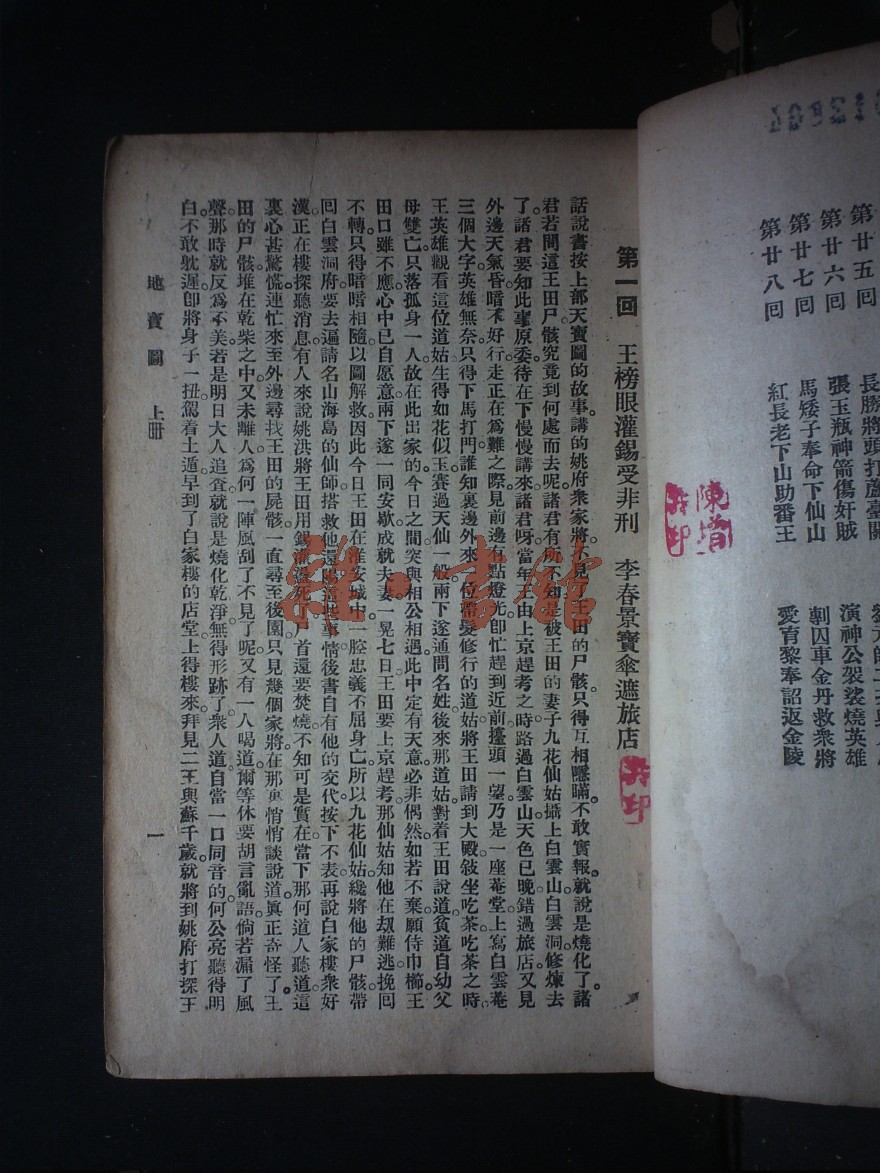 第廿五囘 長勝將頭打蘆臺關
第廿六囘 張玉瓶神箭傷奸賊 演神公袈裟燒英雄
第廿七囘 馬矮子奉命下仙山 剝囚車金丹救衆將
第廿八囘 紅長老下山助番王 愛育黎奉詔返金陵
第一囘 王榜眼灌錫受非刑 李春景寶傘遮旅店
話說書按上部天寶圖的故事。講的姚府衆家將。不見了王田的尸骸。只得互相隱瞞。不敢實報。就說是燒化了。諸
君若問這王田尸骸究竟到何處而去呢。諸君有所不知。是被王田的妻子九花仙姑。攝上白雲山白雲洞。修煉去
了。諸君要知此事原委。待在下慢慢講來。諸君呀。當年王由上京趕考之時。路過白雲山。天色已晚。錯過旅店。又見
外邊天氣昏暗。不好行走。正在爲難之際。見前邊有點燈光。卽忙趕到近前。擡頭一望。乃是一座菴堂。上寫白雲菴
三個大字。英雄無奈。只得下馬打門。誰知裏邊外來一位帶髮修行的道姑。將王田請到大殿。敍坐吃茶。吃茶之時。
王英雄觀看這位道姑。生得如花似玉。賽過天仙一般。兩下遂通問名姓。後來那道姑對着王田說道。貧道自幼父
母雙亡。只落孤身一人。故在此出家的。今日之間。突與相公相遇。此中定有天意。必非偶然。如若不棄。願侍巾櫛。王
田口雖不應。心中已自愿意。兩下遂一同安歇。成就夫妻。一晃七日。王田要上京趕考。那仙姑知他在刼難逃。挽囘
不轉。只得暗暗相隨。以圖解救。因此今日王田在淮安城中。一腔忠義不屈身亡。所以九花仙姑。纔將他的尸骸。帶
囘白雲洞府。要去遍請名山海島的仙師。搭救他還陽。這事情後書自有他的交代。按下不表。再說白家樓衆好
漢。正在樓探聽消息。有人來說。姚洪將王田用錫灌燙死了。尸首還要焚燒。不知可是實在。當下那何道人聽道這
裏。心甚驚慌。連忙來至外邊尋找王田的屍骸。一直尋至後園。只見幾個家將。在那裏悄悄談說道。眞正奇怪了。王
田的尸骸堆在乾柴之中。又未離人。爲何一陣風刮了不見了呢。又有一人喝道。爾等休要胡言亂語。倘若漏了風
聲。那時就反爲不美。若是明日大人追查。就說是燒化乾淨。無得形跡了。衆人道。自當一口同音的。何公亮聽得明
白。不敢躭遲。卽將身子一扭。駕着土遁。早到了白家樓的店堂。上得樓來。拜見二王與蘇千歲。就將到姚府打探王
地寶圖 上册 一
雜·書館